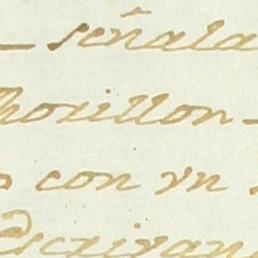 señala
houillon
con vn
Escrivan